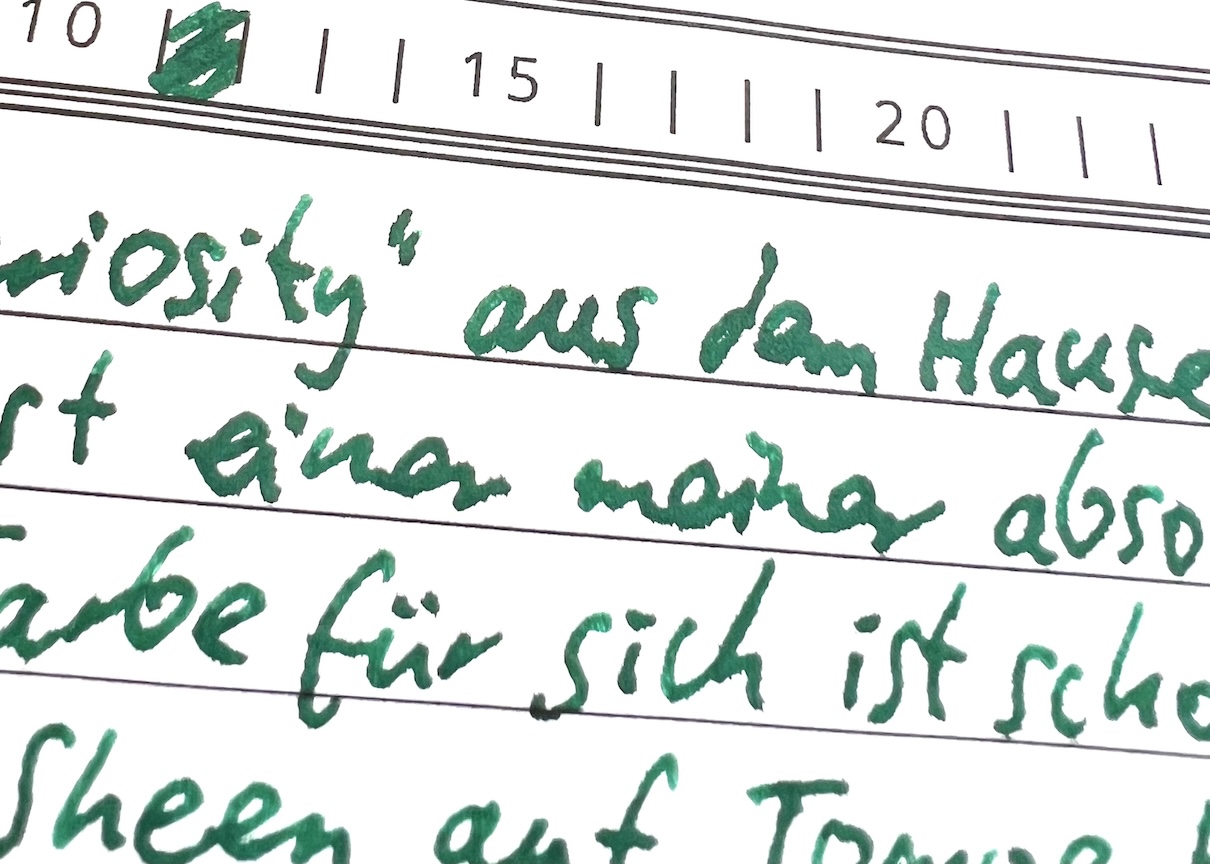 10 15 20
riosity“ aus dem Hause
st einer meiner abso
arbe für sich ist scho
Sheen auf Tomoe